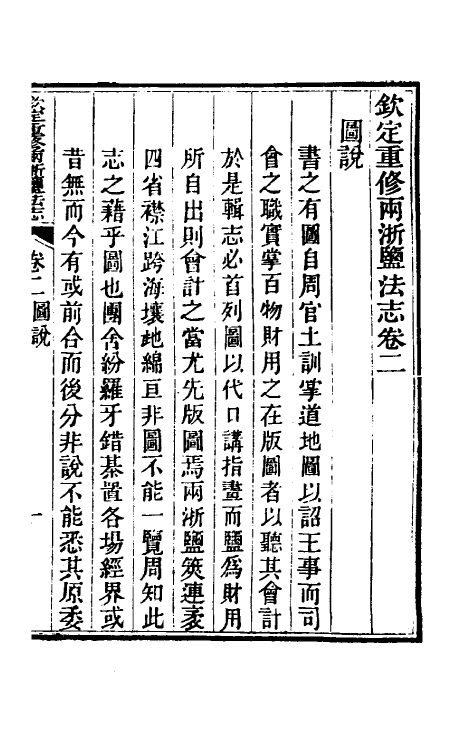 欽定重修兩浙鹽法志卷二
圖說
書之有圖自周官土訓掌道地圖以詔王事而司
會之職實掌百物財用之在版圖者以聽其會計
於是輯志必首列圖以代口講指畫而鹽爲財用
所自出則會計之當尤先版圖焉兩浙鹽筴連袤
四省襟江跨海壤地綿亘非圖不能一覽周知此
志之藉乎圖也團舍紛羅牙錯棊置各場經界或
昔無而今有或前合而後分非說不能悉其原委
欽定重修兩浙鹽法志
卷二圖說
一